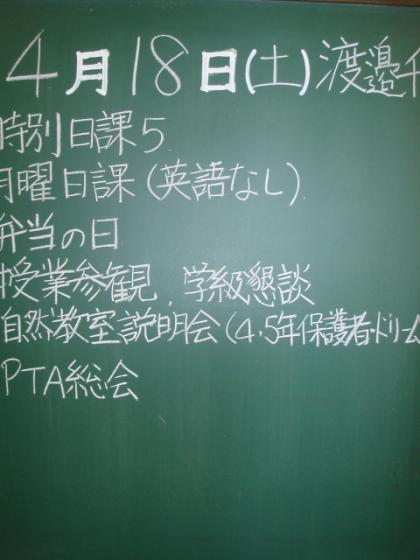 4月18日(土)渡邉千
時別日課5
月曜日課(英語なし)
弁当の日
授業参観、学級懇談
自然教室説明会(4,5年保護者・ドリーム
PTA総会